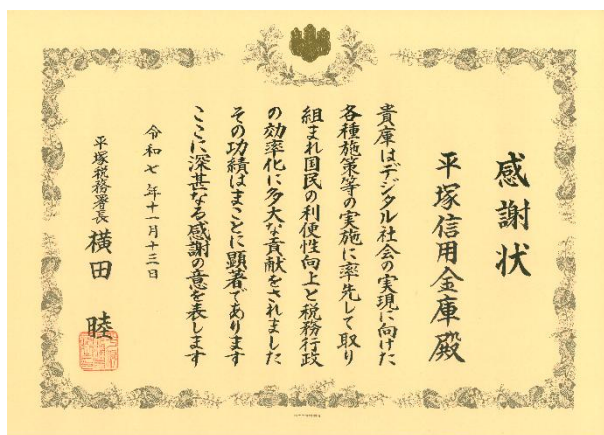 感謝状
平塚信用金庫殿
貴庫はデジタル社会の実現に向けた
各種施策等の実施に率先して取り
組まれ国民の利便性向上と税務行政
の効率化に多大な貢献をされました
その功績はまことに顕著であります
ここに深甚なる感謝の意を表します
令和七年十一月十三日
平塚税務署長 横田 睦